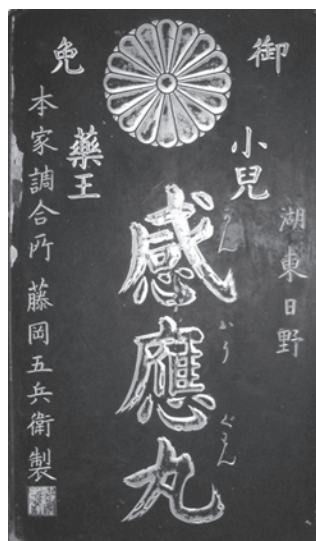 御免
湖東日野
小兒
感應丸
かんおうぐわん
藥王
本家調合所 藤岡五兵衛製